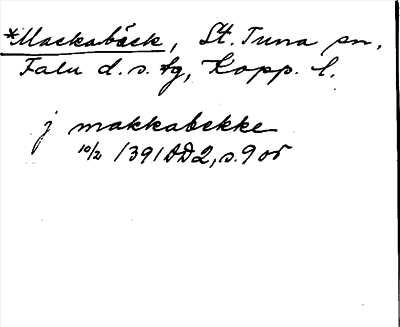 *Mackabäck, St. Tuna sn,
Falu d. s. tg, Kopp. l.
j makkabekke
10/2 1391 DD2, s. 90r